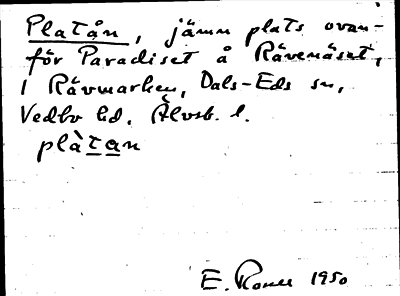 Platån, jämn plats ovan-
för Paradiset å Rävenäset,
i Rävmarken, Dals-Eds sn,
Vedbo hd. Älvsb. l.
plàtan
E. Roner 1950